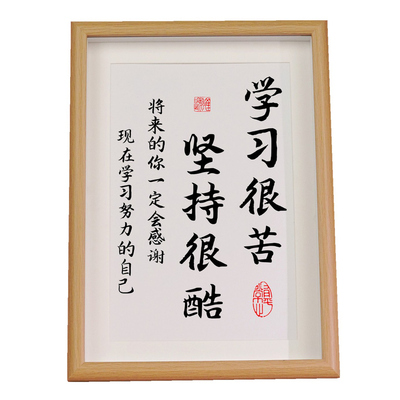 学习很苦
坚持很酷
将来的你一定会感谢
现在学习努力的自己